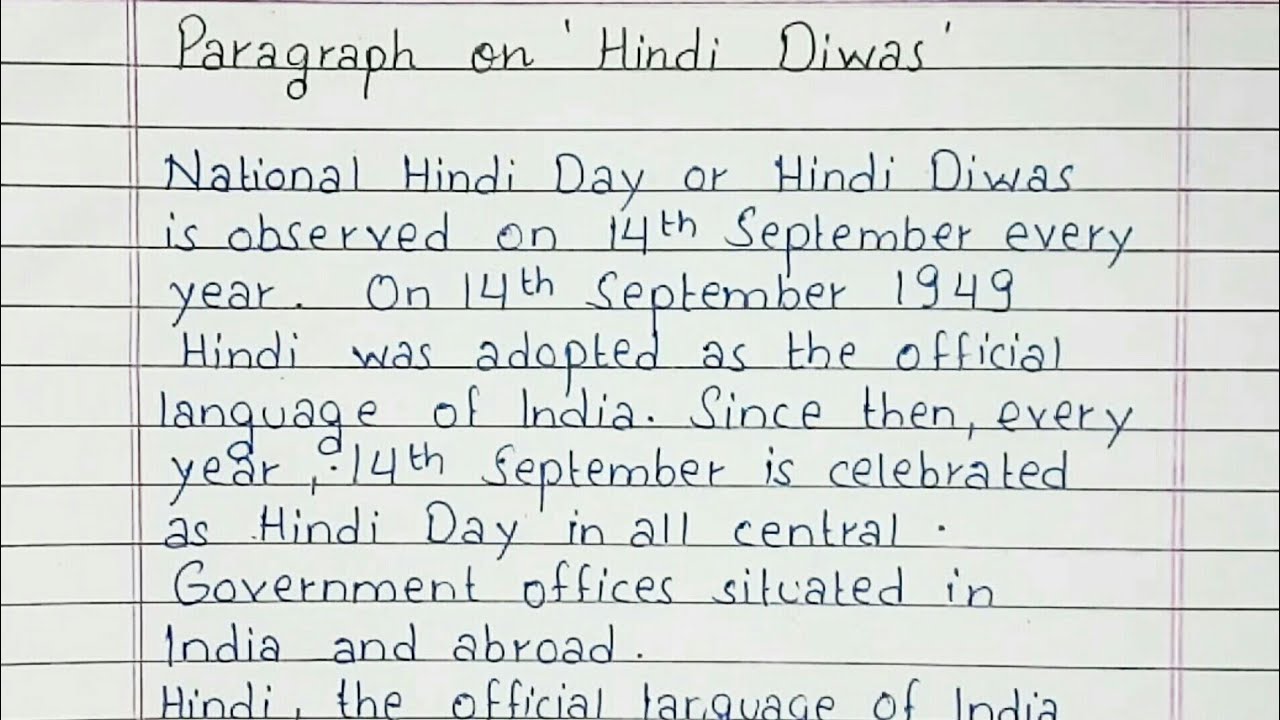 Paragraph on 'Hindi Diwas'
National Hindi Day or Hindi Diwas
is observed on 14th September every
year. On 14th September 1949
Hindi was adopted as the official
language of India. Since then, every
year, 14th September is celebrated
as Hindi Day in all central
Government offices situated in
India and abroad.
Hindi, the official language of India